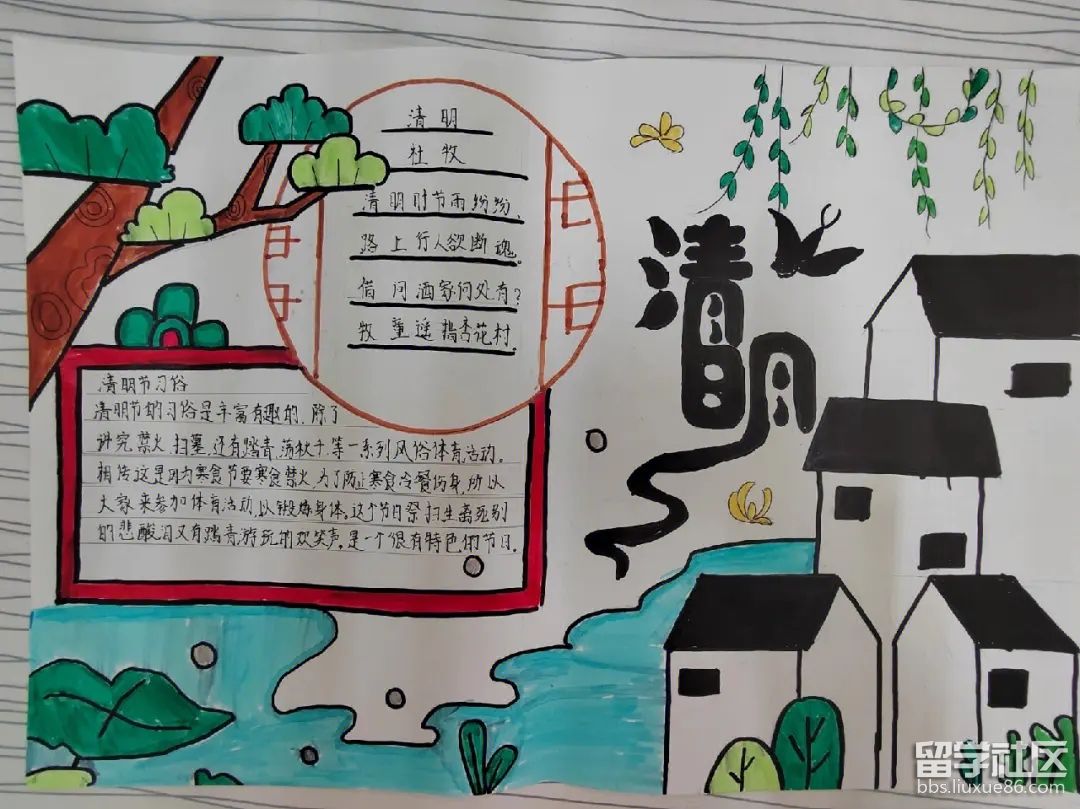 清明
社牧
清明时节雨纷纷,
路上行人欲断魂。
借问酒家何处有?
牧童遥指杏花村.
清明
清明节习俗
清明节的习俗是丰富有趣的,除了
讲究禁火、扫墓,还有踏青、荡秋千、等一系列风俗体育活动。
相传这是因为寒食节要寒食禁火,为了防止寒食冷餐伤身,所以
大家来参加体育活动,以锻炼身体。这个节日祭扫生离死别
的悲酸泪又有踏青游玩的欢笑声,是一个很有特色的节日。
留学社区
bbs.liuxue86.com